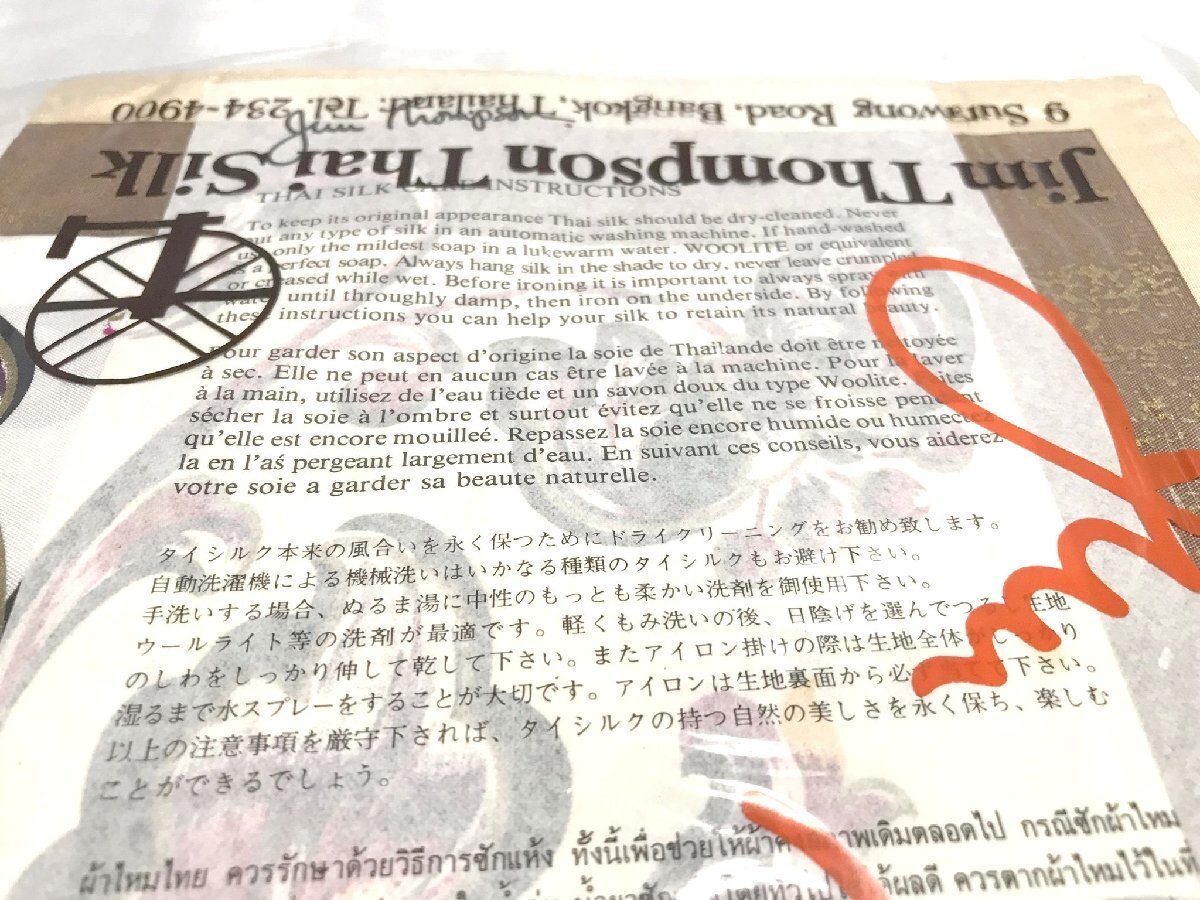 9 Surawong Road, Bangkok, Thailand. Tel. 234-4900
Jim Thompson Thai Silk
Jim Thompson
THAI SILK CARE INSTRUCTIONS
To keep its original appearance Thai silk should be dry-cleaned. Never
put any type of silk in an automatic washing machine. If hand-washed
use only the mildest soap in a lukewarm water. WOOLITE or equivalent
is a perfect soap. Always hang silk in the shade to dry, never leave crumpled
or creased while wet. Before ironing it is important to always spray with
water until throughly damp, then iron on the underside. By following
these instructions you can help your silk to retain its natural beauty.
Pour garder son aspect d'origine la soie de Thaïlande doit être nettoyée
à sec. Elle ne peut en aucun cas être lavée à la machine. Pour la laver
à la main, utilisez de l'eau tiède et un savon doux du type Woolite. Faites
sécher la soie à l'ombre et surtout évitez qu'elle ne se froisse pendant
qu'elle est encore mouilleé. Repassez la soie encore humide ou humectez
la en l'aś pergeant largement d'eau. En suivant ces conseils, vous aiderez
votre soie a garder sa beaute naturelle.
タイシルク本来の風合いを永く保つためにドライクリーニングをお勧め致します。
自動洗濯機による機械洗いはいかなる種類のタイシルクもお避け下さい。
手洗いする場合、ぬるま湯に中性のもっとも柔かい洗剤を御使用下さい。
ウールライト等の洗剤が最適です。軽くもみ洗いの後、日陰げを選んでつるし生地
のしわをしっかり伸して乾して下さい。またアイロン掛けの際は生地全体がしっかり
湿るまで水スプレーをすることが大切です。アイロンは生地裏面から必ず当てて下さい。
以上の注意事項を厳守下されば、タイシルクの持つ自然の美しさを永く保ち、楽しむ
ことができるでしょう。
ผ้าไหมไทย ควรรักษาด้วยวิธีการซักแห้ง ทั้งนี้เพื่อช่วยให้ผ้าคงสภาพเดิมตลอดไป กรณีซักผ้าไหม
ได้ผลดี ควรตากผ้าไหมไว้ในที่